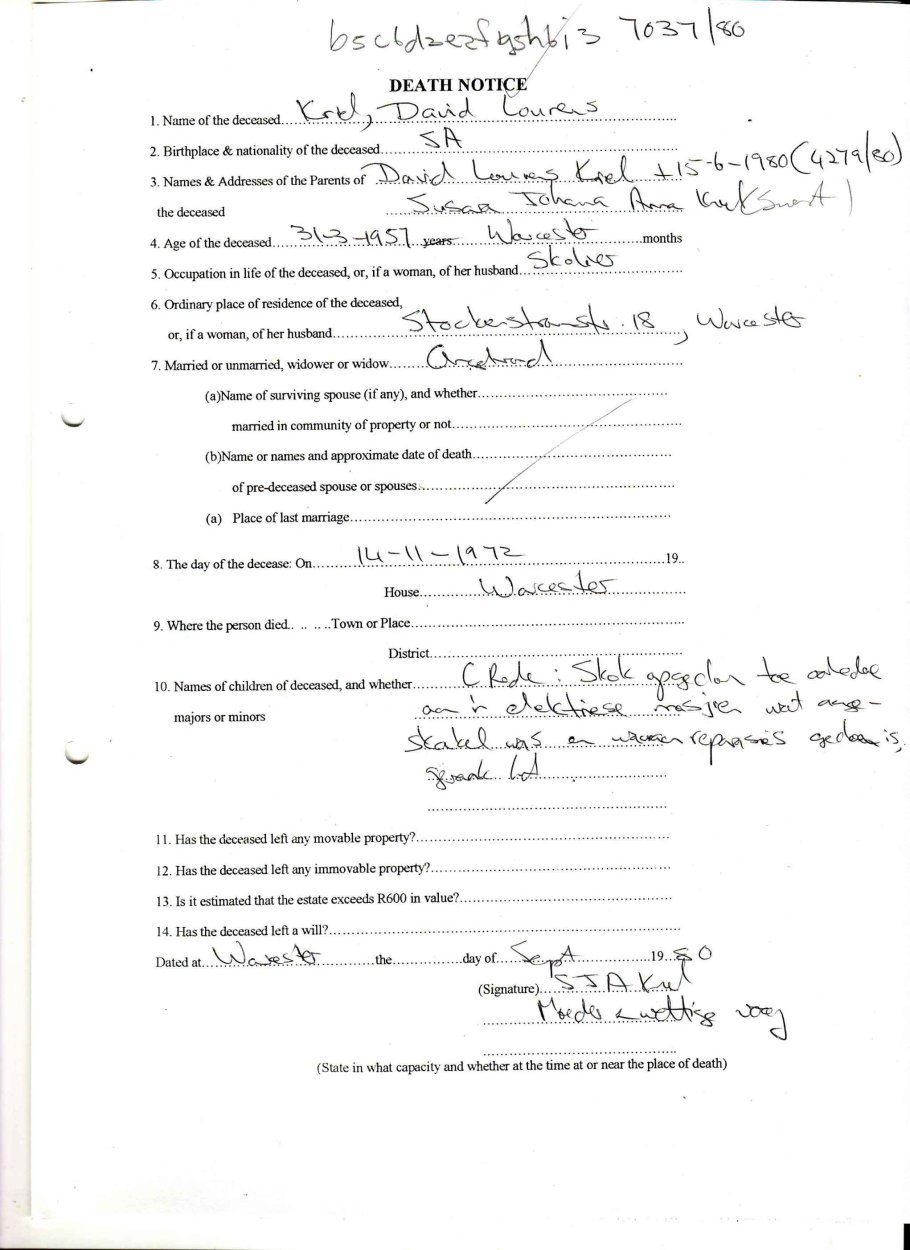 b5c6d2e2f9g5h6i3 7037/80
DEATH NOTICE
1. Name of the deceased....Kriel, David Lourens
2. Birthplace & nationality of the deceased....SA
3. Names & Addresses of the Parents of David Lourens Kriel +15-6-1980 (4279/80)
the deceased Susara Johana Anna Kriel
4. Age of the deceased....31-3-1957 years Worcester....months
5. Occupation in life of the deceased, or, if a woman, of her husband....Skolier
6. Ordinary place of residence of the deceased,
or, if a woman, of her husband....Stockenstromstr. 18, Worcester
7. Married or unmarried, widower or widow....Ongetroud
(a)Name of surviving spouse (if any), and whether....
married in community of property or not....
(b)Name or names and approximate date of death....
of pre-deceased spouse or spouses....
(a) Place of last marriage....
8. The day of the decease: On....14-11-1972....19..
House....Worcester
9. Where the person died.. .. .. ..Town or Place....
District....
10. Names of children of deceased, and whether....Rede: Skok opgedoen toe oorledee
majors or minors aan 'n elektriese masjien wat aange-
skakel was en waaraan reparasies gedoen is,
geraak het
11. Has the deceased left any movable property?....
12. Has the deceased left any immovable property?....
13. Is it estimated that the estate exceeds R600 in value?....
14. Has the deceased left a will?....
Dated at....Worcester....the....day of....Sept....19..80
(Signature)....SJA Kriel
Moeder & wettige voog
(State in what capacity and whether at the time at or near the place of death)